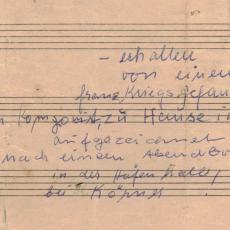 – erhalten
von einem
franz. Kriegsgefan
Komponist, zu Hause i
aufgezeichnet
nach einem Abend
in der
bei